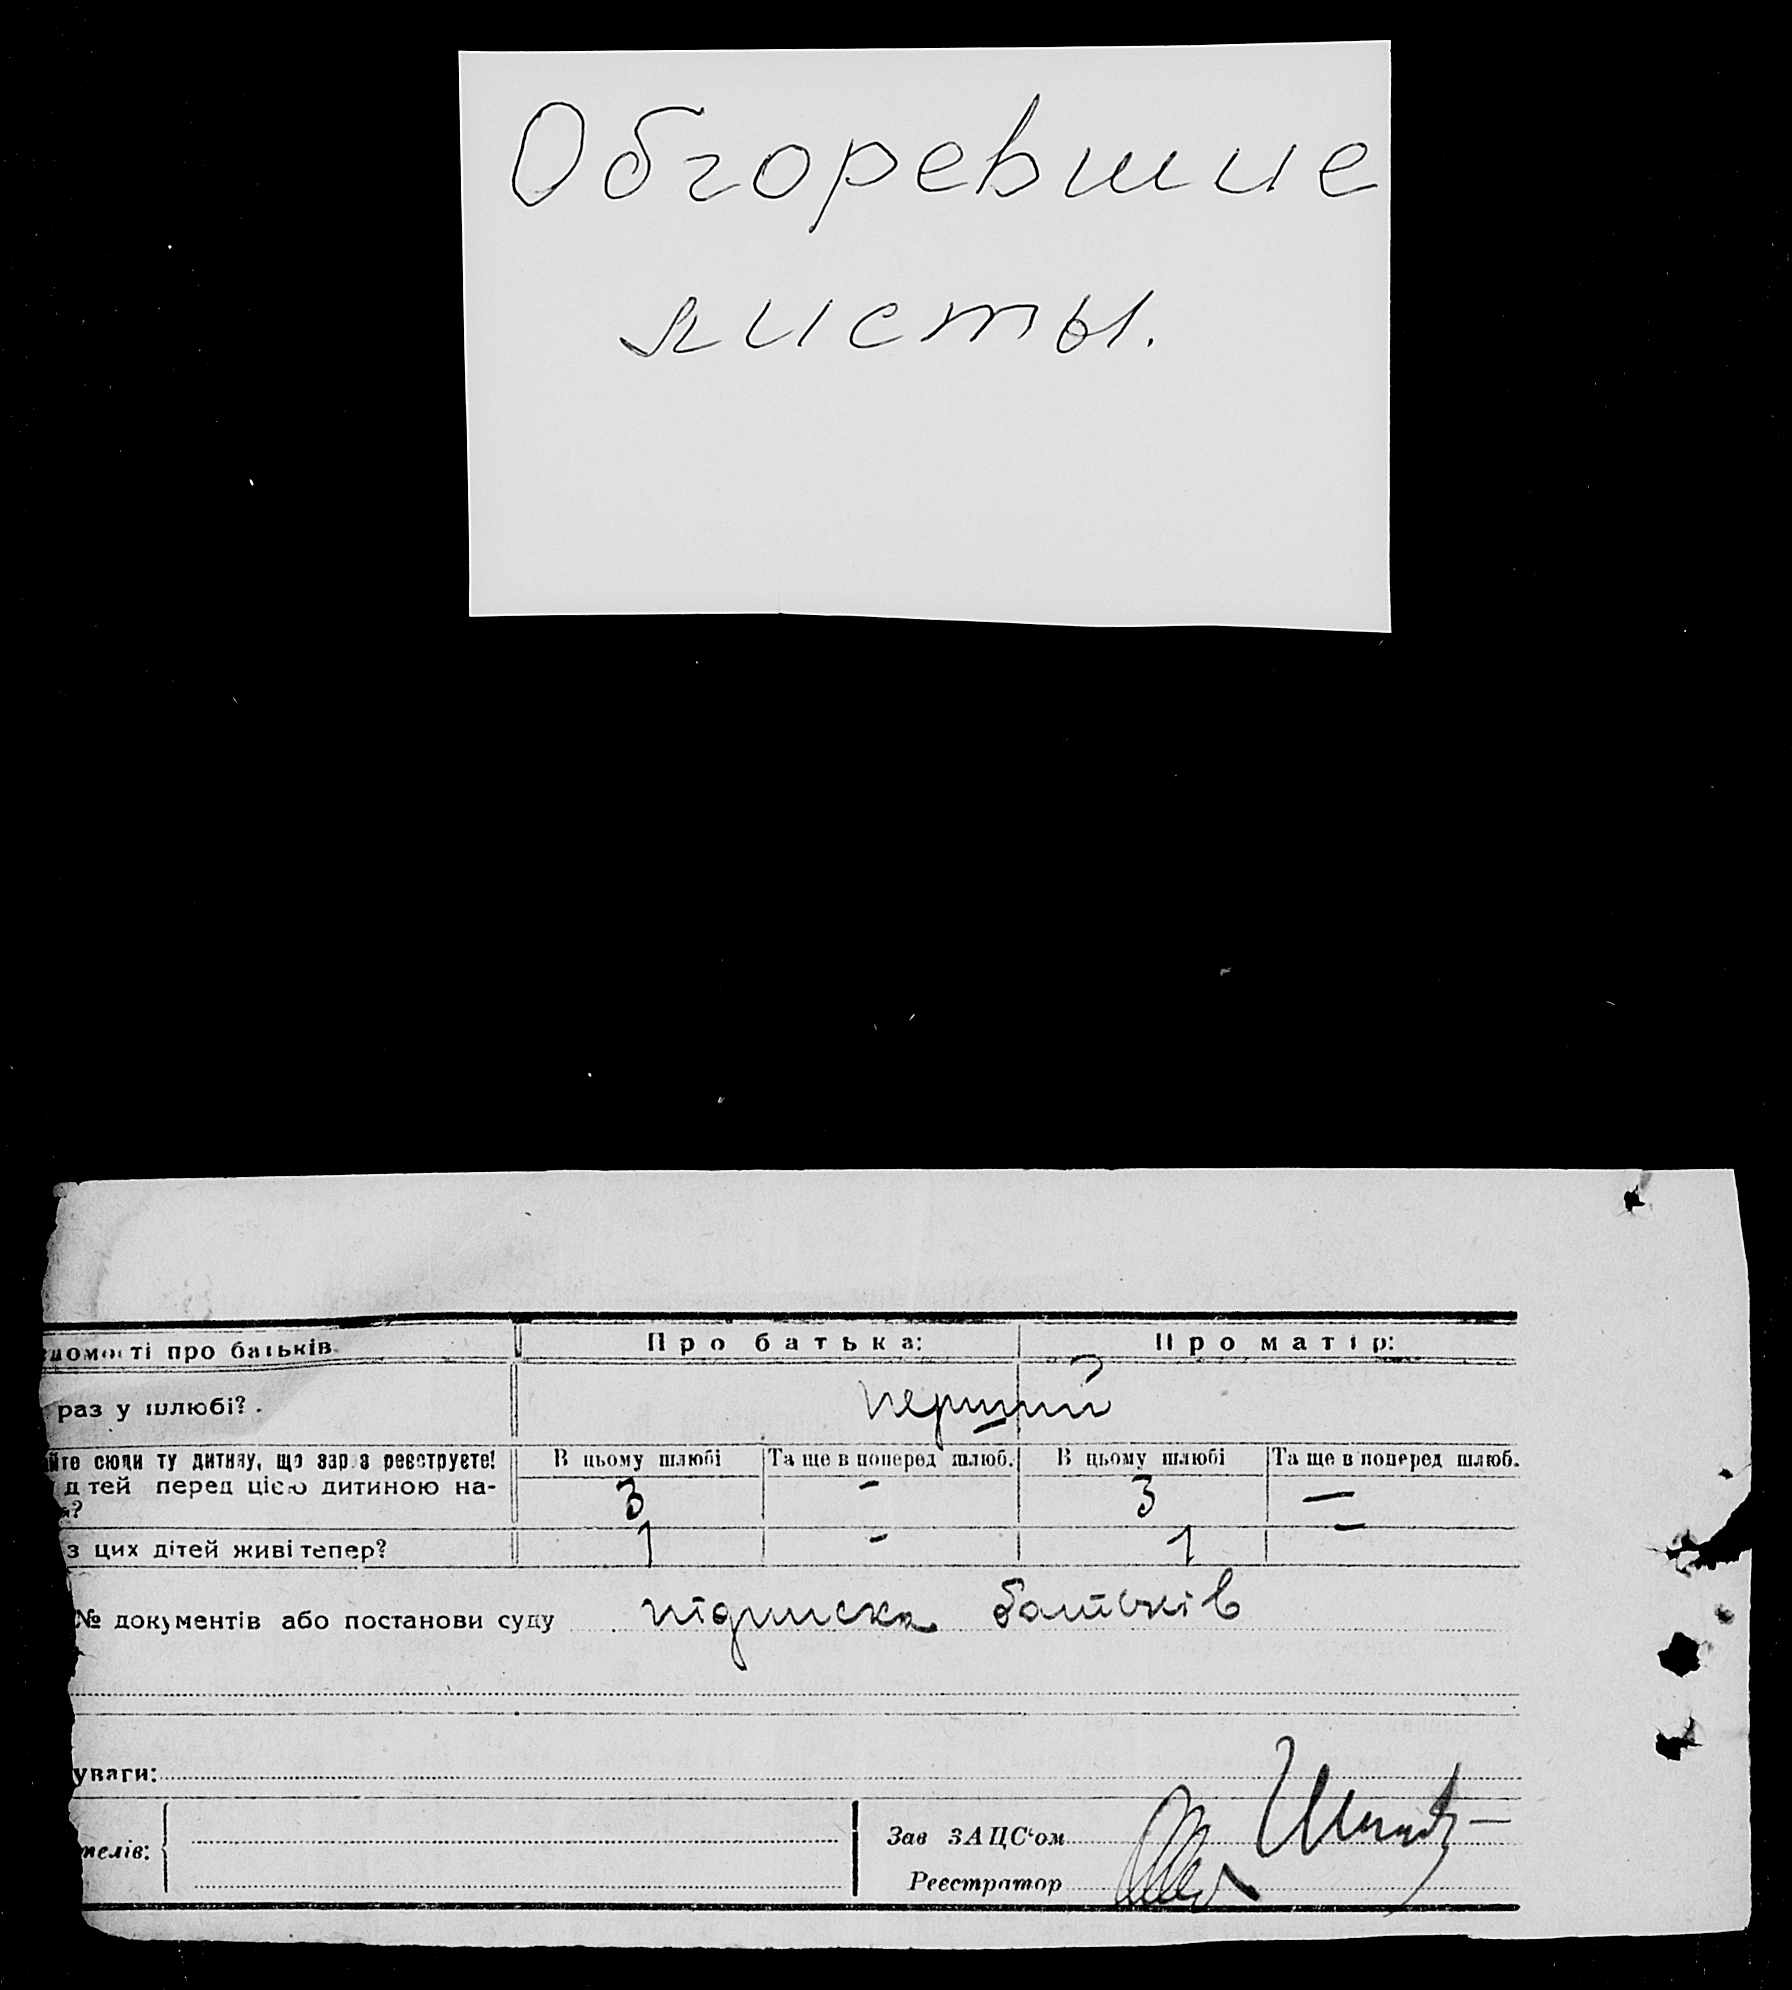 Обгоревшие
листы.
домості про батьків. Про батька: Про матір:
раз у шлюбі? перший
йте сюди ту дитину, що зараз реєструєте! В цьому шлюбі Та ще в поперед шлюб. В цьому шлюбі Та ще в поперед шлюб.
дітей перед цією дитиною на- 3 - 3 —
?
з цих дітей живі тепер? 1 - 1 —
№ документів або постанови суду підписка батьків
уваги:
телів: Зав ЗАЦС‘ом
Реєстратор